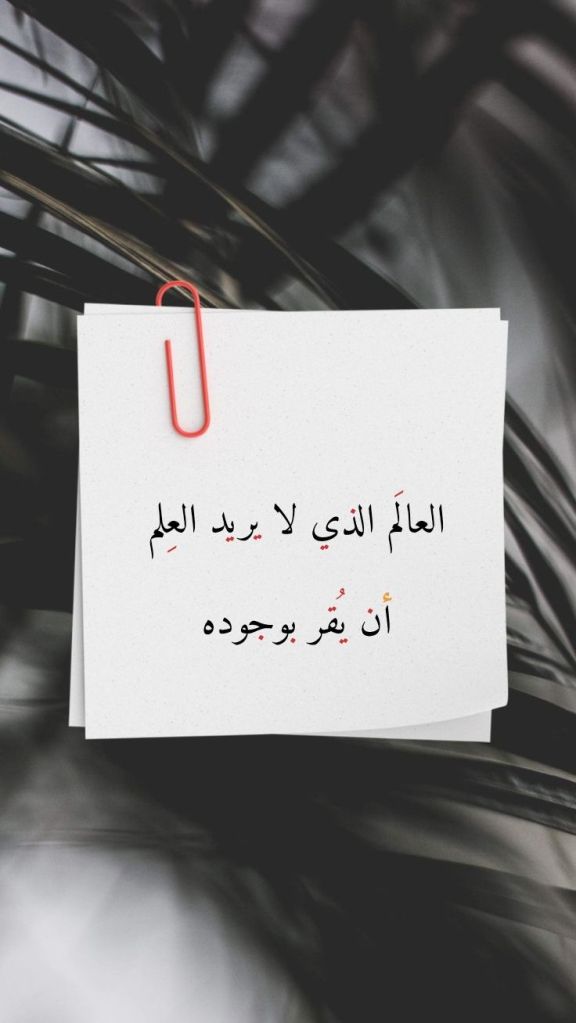 العالَم الذي لا يريد العِلم
أن يُقر بوجوده